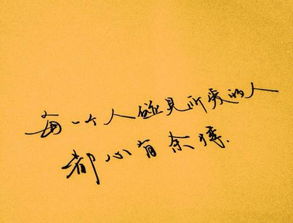 每一个人碰见所爱的人
都心有余悸.